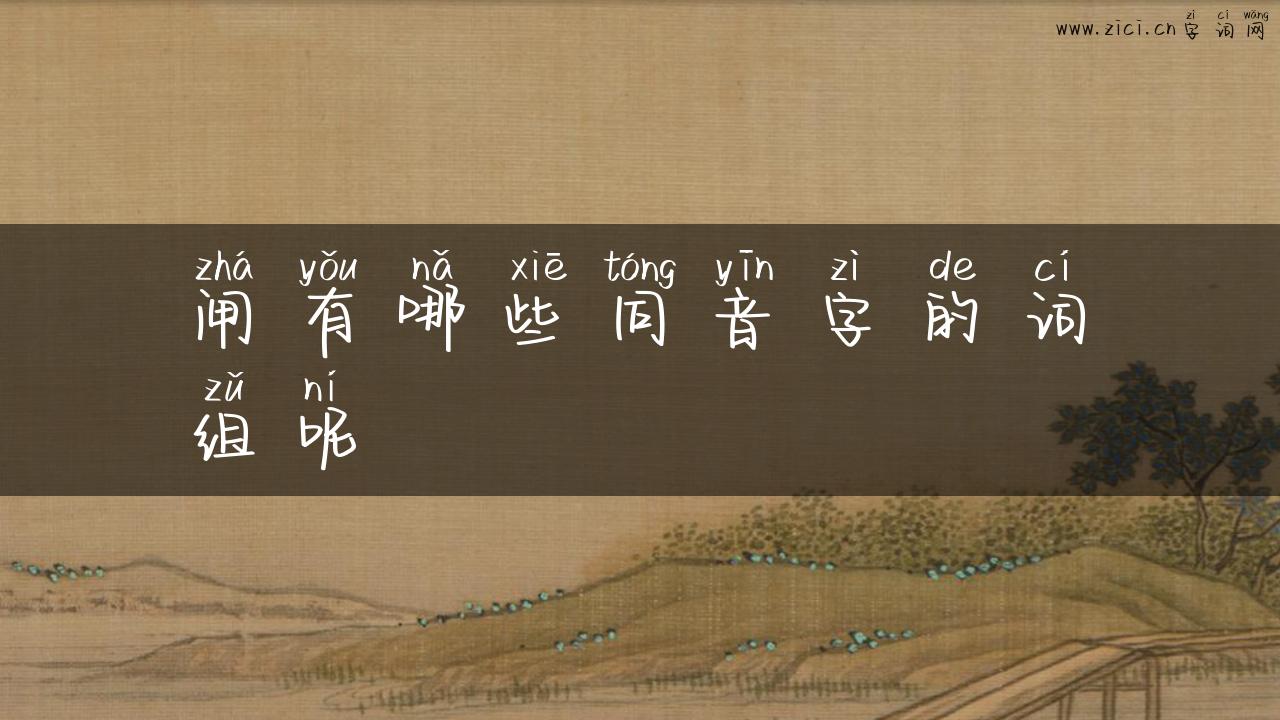 zì cí wǎng
www.zici.cn 字词网
zhá yǒu nǎ xiē tóng yīn zì de cí
闸有哪些同音字的词
zǔ ní
组呢